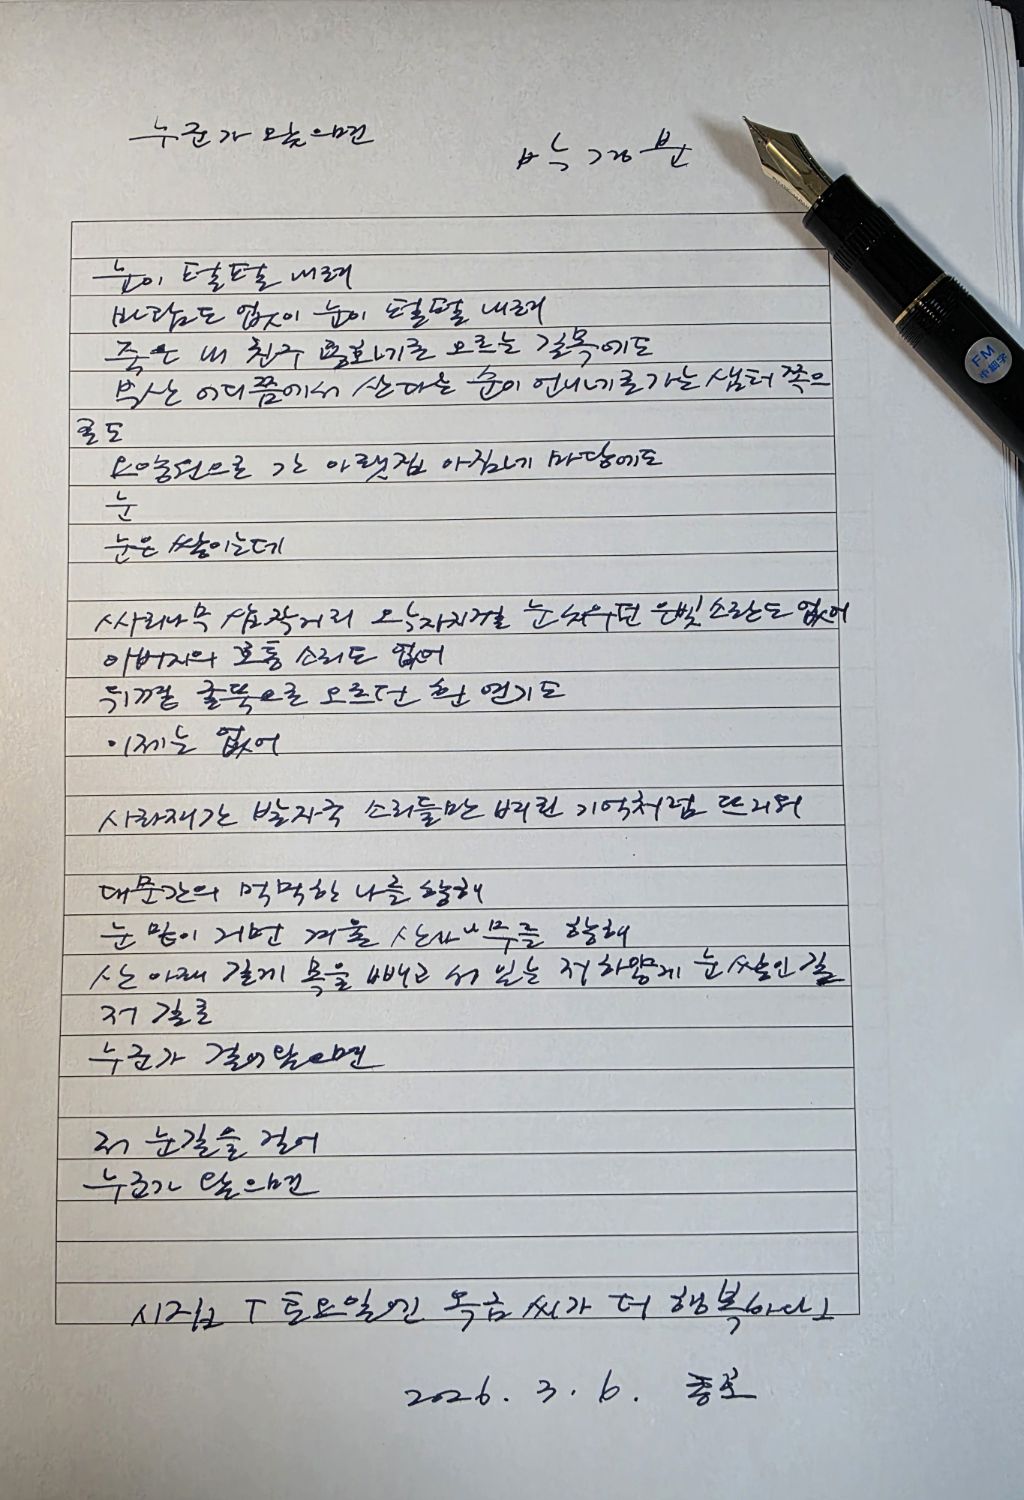 누군가 오늘 왔으면
박경분
눈이 털털 내려
바람도 없이 눈이 털털 내려
죽은 내 친구 용화네로 오르는 길목에도
박산 어디쯤에서 산다는 순이 언니네로 가는 샘터 쪽으
로도
요양원으로 간 아랫집 아짐네 마당에도
눈
눈은 쌓이는데
싸리나무 삼짝거리 오막자치걸 눈 치우던 은빛 소란도 없어
아버지의 호통 소리도 없어
뒤꼍 굴뚝으로 오르던 흰 연기도
이제는 없어
사라져간 발자국 소리들만 버린 기억처럼 뜨거워
대문간의 먹먹한 나를 향해
눈 맞이 거면 겨울 산사나무를 향해
산 아래 길게 목을 빼고 서 있는 저 하얗게 눈 쌓인 길
저 길로
누군가 걸어 왔으면
저 눈길을 걸어
누군가 왔으면
시집 「토요일엔 옥금 씨가 더 행복하다」
2026. 3. 6. 종로
FM
中細字